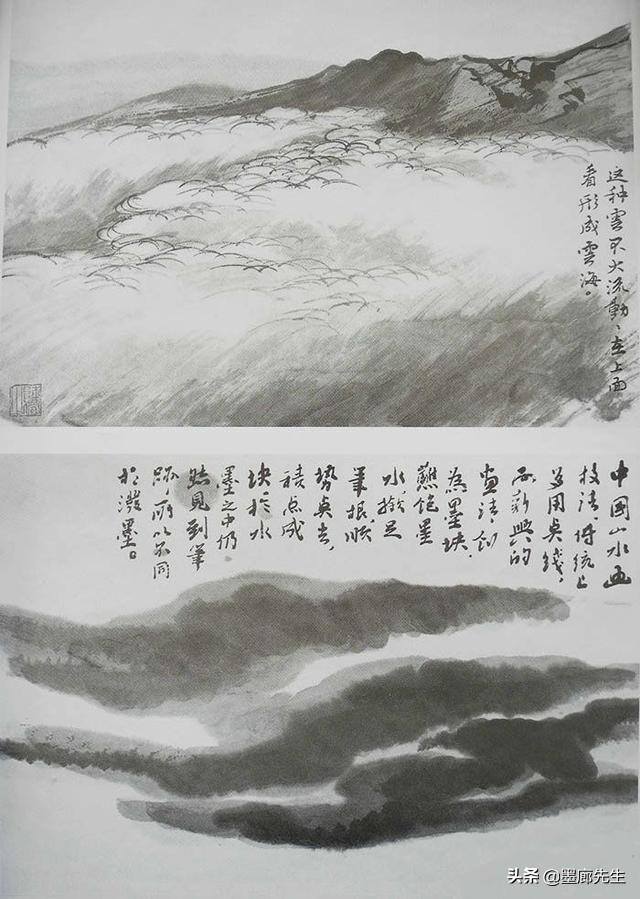 这种雲不大流動、在上面
看形成雲海。
中國山水画
技法傳統上
多用点綫，
而新興的
画法、
為墨块.
蘸饱墨
水撳足
筆根順
势点去,
積点成
块於水
墨之中仍
然见到筆
跡所以不同
於潑墨。
头条 @墨廊先生